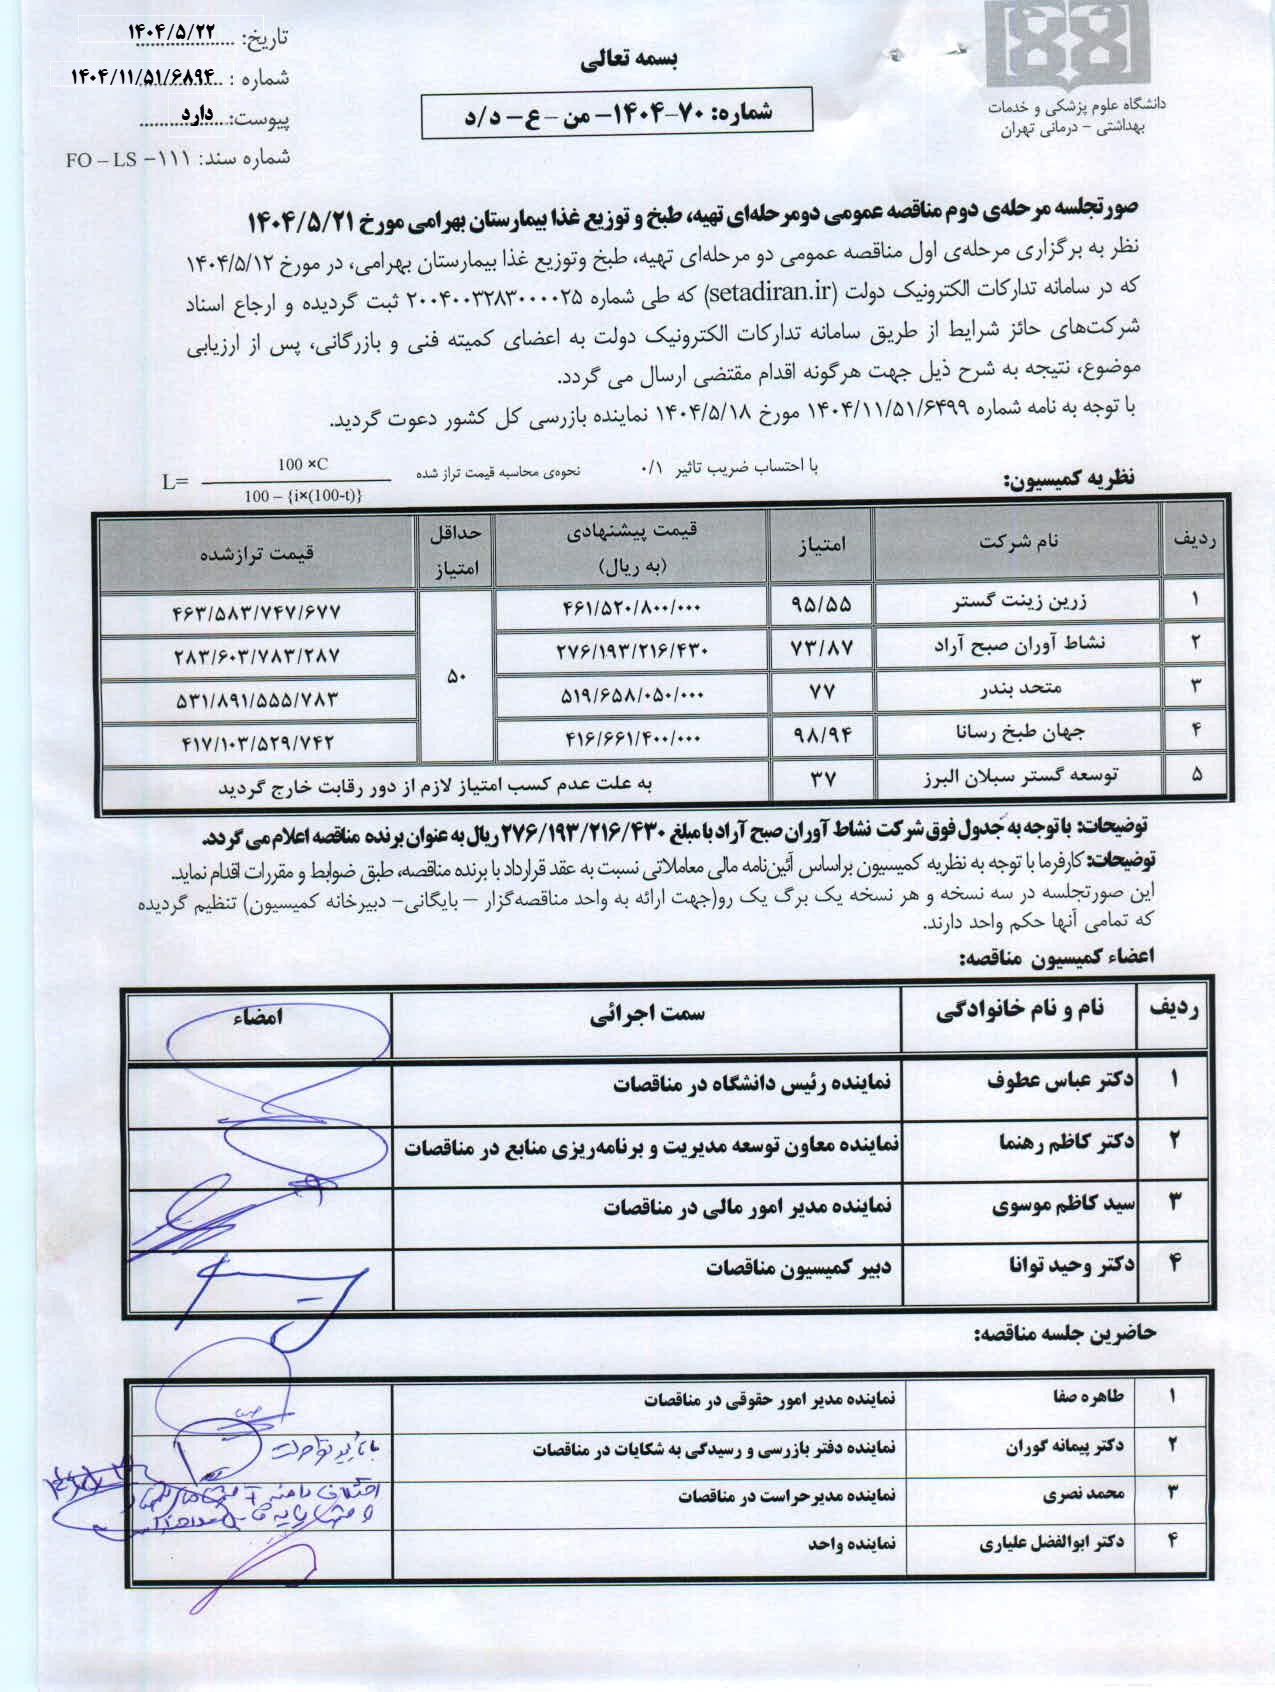 دانشگاه علوم پزشکی و خدمات
بهداشتی - درمانی تهران
بسمه تعالی
شماره: ۷۰-۱۴۰۴- من - ع- د/د
تاریخ: ۱۴۰۴/۵/۲۲
شماره : ۱۴۰۴/۱۱/۵۱/۶۸۹۴
پیوست: دارد
شماره سند: FO – LS –۱۱۱
صورتجلسه مرحله‌ی دوم مناقصه عمومی دومرحله‌ای تهیه، طبخ و توزیع غذا بیمارستان بهرامی مورخ ۱۴۰۴/۵/۲۱
نظر به برگزاری مرحله‌ی اول مناقصه عمومی دو مرحله‌ای تهیه، طبخ وتوزیع غذا بیمارستان بهرامی، در مورخ ۱۴۰۴/۵/۱۲
که در سامانه تدارکات الکترونیک دولت (setadiran.ir) که طی شماره ۲۰۰۴۰۰۳۲۸۳۰۰۰۰۲۵ ثبت گردیده و ارجاع اسناد
شرکت‌های حائز شرایط از طریق سامانه تدارکات الکترونیک دولت به اعضای کمیته فنی و بازرگانی، پس از ارزیابی
موضوع، نتیجه به شرح ذیل جهت هرگونه اقدام مقتضی ارسال می گردد.
با توجه به نامه شماره ۱۴۰۴/۱۱/۵۱/۶۴۹۹ مورخ ۱۴۰۴/۵/۱۸ نماینده بازرسی کل کشور دعوت گردید.
نظریه کمیسیون: با احتساب ضریب تاثیر ۰/۱ نحوه‌ی محاسبه قیمت تراز شده
L= 100 ×C
100 – {i×(100-t)}
ردیف نام شرکت امتیاز قیمت پیشنهادی (به ریال) حداقل امتیاز قیمت ترازشده
۱ زرین زینت گستر ۹۵/۵۵ ۴۶۱/۵۲۰/۸۰۰/۰۰۰ ۴۶۳/۵۸۳/۷۴۷/۶۷۷
۲ نشاط آوران صبح آراد ۷۳/۸۷ ۲۷۶/۱۹۳/۲۱۶/۴۳۰ ۵۰ ۲۸۳/۶۰۳/۷۸۳/۲۸۷
۳ متحد بندر ۷۷ ۵۱۹/۶۵۸/۰۵۰/۰۰۰ ۵۳۱/۸۹۱/۵۵۵/۷۸۳
۴ جهان طبخ رسانا ۹۸/۹۴ ۴۱۶/۶۶۱/۴۰۰/۰۰۰ ۴۱۷/۱۰۳/۵۲۹/۷۴۲
۵ توسعه گستر سبلان البرز ۳۷ به علت عدم کسب امتیاز لازم از دور رقابت خارج گردید
توضیحات: با توجه به جدول فوق شرکت نشاط آوران صبح آراد با مبلغ ۲۷۶/۱۹۳/۲۱۶/۴۳۰ ریال به عنوان برنده مناقصه اعلام می گردد.
توضیحات: کارفرما با توجه به نظریه کمیسیون براساس آئین‌نامه مالی معاملاتی نسبت به عقد قرارداد با برنده مناقصه، طبق ضوابط و مقررات اقدام نماید.
این صورتجلسه در سه نسخه و هر نسخه یک برگ یک رو(جهت ارائه به واحد مناقصه‌گزار – بایگانی- دبیرخانه کمیسیون) تنظیم گردیده
که تمامی آنها حکم واحد دارند.
اعضاء کمیسیون مناقصه:
ردیف نام و نام خانوادگی سمت اجرائی امضاء
۱ دکتر عباس عطوف نماینده رئیس دانشگاه در مناقصات
۲ دکتر کاظم رهنما نماینده معاون توسعه مدیریت و برنامه‌ریزی منابع در مناقصات
۳ سید کاظم موسوی نماینده مدیر امور مالی در مناقصات
۴ دکتر وحید توانا دبیر کمیسیون مناقصات
حاضرین جلسه مناقصه:
۱ طاهره صفا نماینده مدیر امور حقوقی در مناقصات
۲ دکتر پیمانه گوران نماینده دفتر بازرسی و رسیدگی به شکایات در مناقصات
۳ محمد نصری نماینده مدیرحراست در مناقصات
۴ دکتر ابوالفضل علیاری نماینده واحد